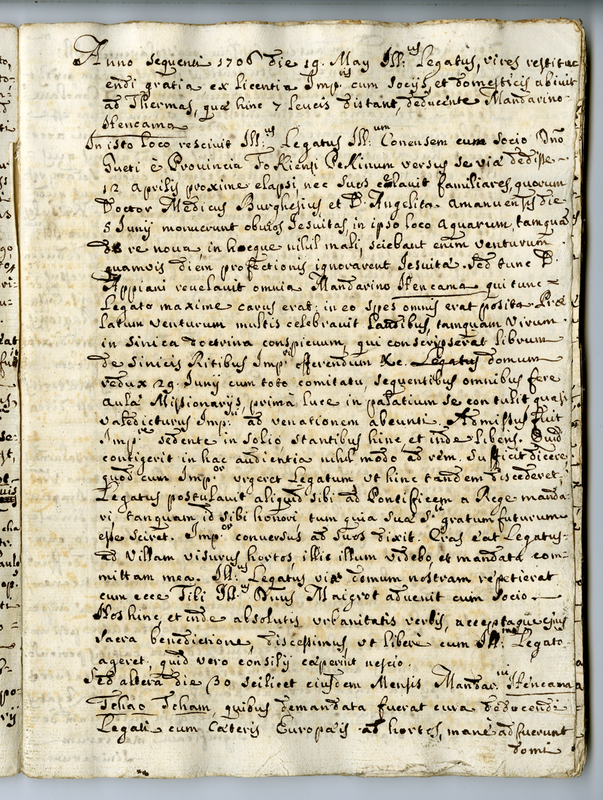 Anno sequenti 1706 die 19. May Ill:us Legatus, vires restitu
endi gratia ex licentia Imp:ris cum Socijs, et domesticis abivit
ad Thermas, quæ hinc 7 leucis distant, deducente Mandarino
Henkama
In isto loco rescivit Ill:us Legatus Ill:um Conensem cum Socio Dno
Gueti è Provincia Fo Kiensi Pekinum versus se viæ dedisse
12 Aprilis proxime elapsi nec suos celavit familiares, quorum
Doctor Medicus Burghesius, et D. Angelita amanuensis die
5 Junij monuerunt obvios Jesuitas, in ipso loco aquarum, tamqua
de re nova, in hocque nihil mali, sciebant enim venturum
quamvis diem profectionis ignoravent Jesuitæ. Sed tunc D.
Appiani revelavit omnia Mandarino Henkama qui tunc
Legato maxime carus erat, in eo spes omnis erat posita. Præ
latum venturum multis celebravit laudibus, tamquam Virum
in Sinica doctrina conspicuum, qui conscripserat librum
de Sinicis Ritibus Imp:ri offerendum &c. Legatus domum
redux 29 Junij cum toto comitatu, sequentibus omnibus fere
aulæ Missionarijs, primâ luce in palatium se contulit quasi
valedicturus Imp:ri ad venationem abeunti. Admissus fuit
Imp:re sedente in solio stantibus hinc et inde liberis. Quid
contigerit in hac audientia nihil modo ad rem. Sufficit dicere
quod cum Imp:or urgeret Legatum ut hinc tandem discederet,
Legatus postulavit aliquid sibi ad Pontificem a Rege manda
ri, tanquam id sibi honori, tum quia Suæ S:ti gratum futurum
esse sciret. Imp:or conversus ad suos dixit. Cras eat Legatus
ad Villam visurus hortos, illis illum videbo, et mandata com
mittam mea. Ill:us Legatus viæ domum nostram repetierat
cum ecce tibi Ill:us Dnus Maigrot advenit cum Socio
Nos hinc et inde absolutis urbanitatis verbis, acceptaque ejus
sacra benedictione, discessimus, ut libere cum Ill:mo Legato
ageret, quid vero consilij cæperint nescio.
Sed altera die (30 scilicet ejusdem Mensis Mandar:ni Henkama
Tchao Tcham, quibus demandata fuerat cura deducendi
Legati cum cæteris Europæis ad hortos, manè adfuerunt
domi